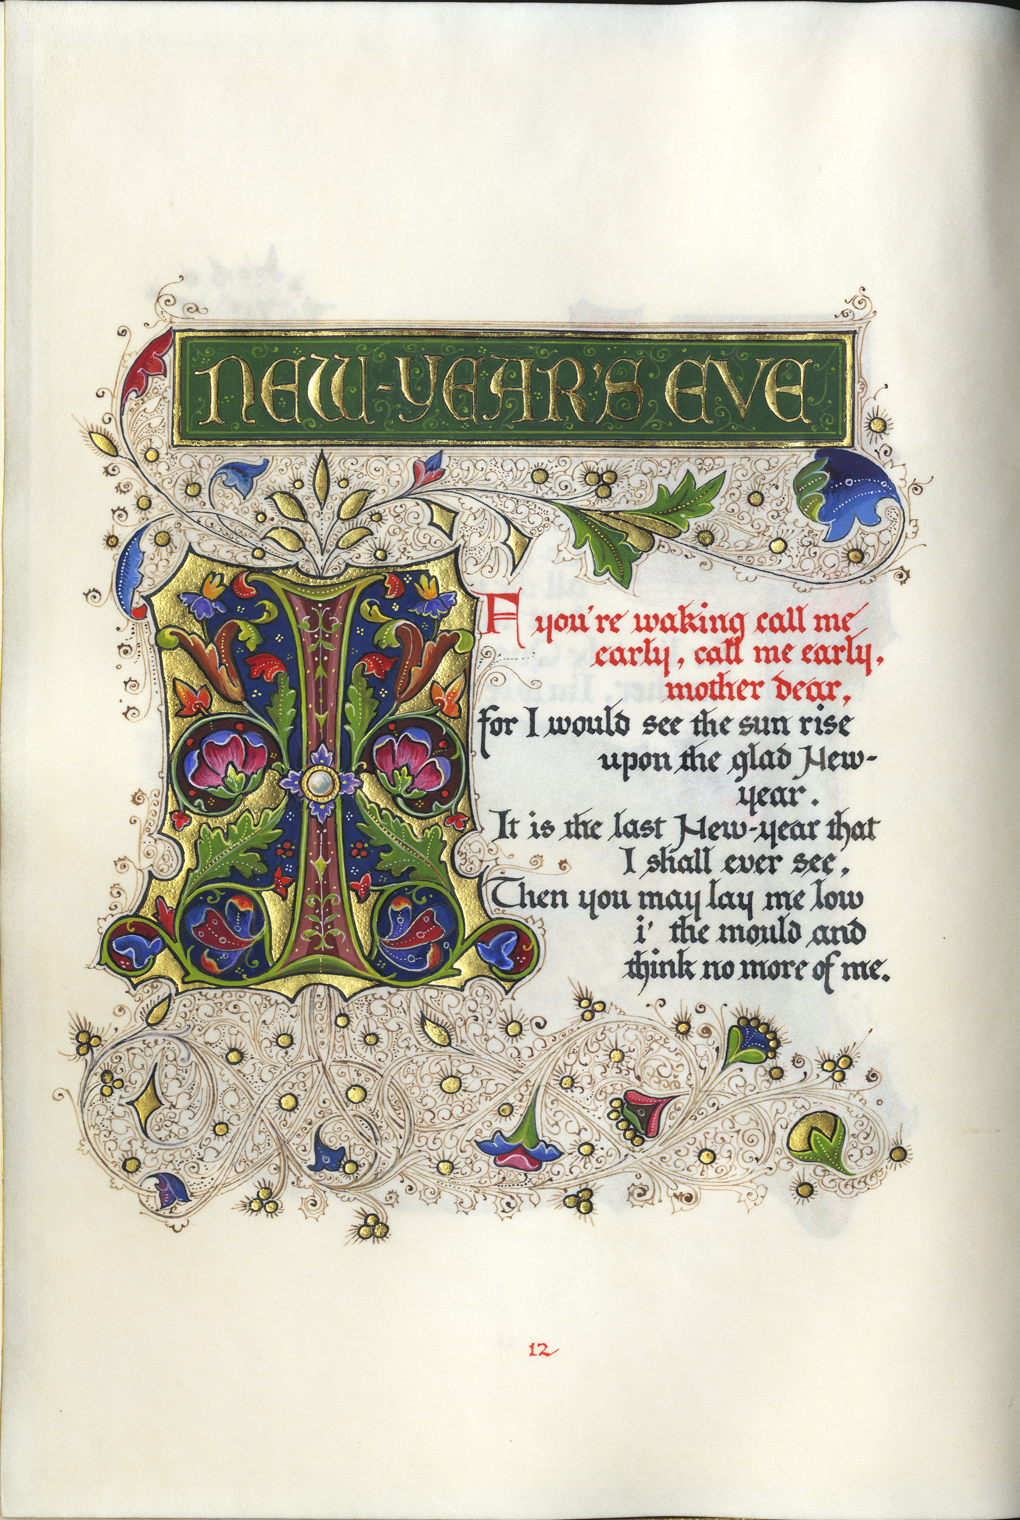 NEW-YEAR'S EVE
IF you're waking call me
early, call me early,
mother dear,
for I would see the sun rise
upon the glad New-
year.
It is the last New-year that
I shall ever see,
Then you may lay me low
i' the mould and
think no more of me.
12